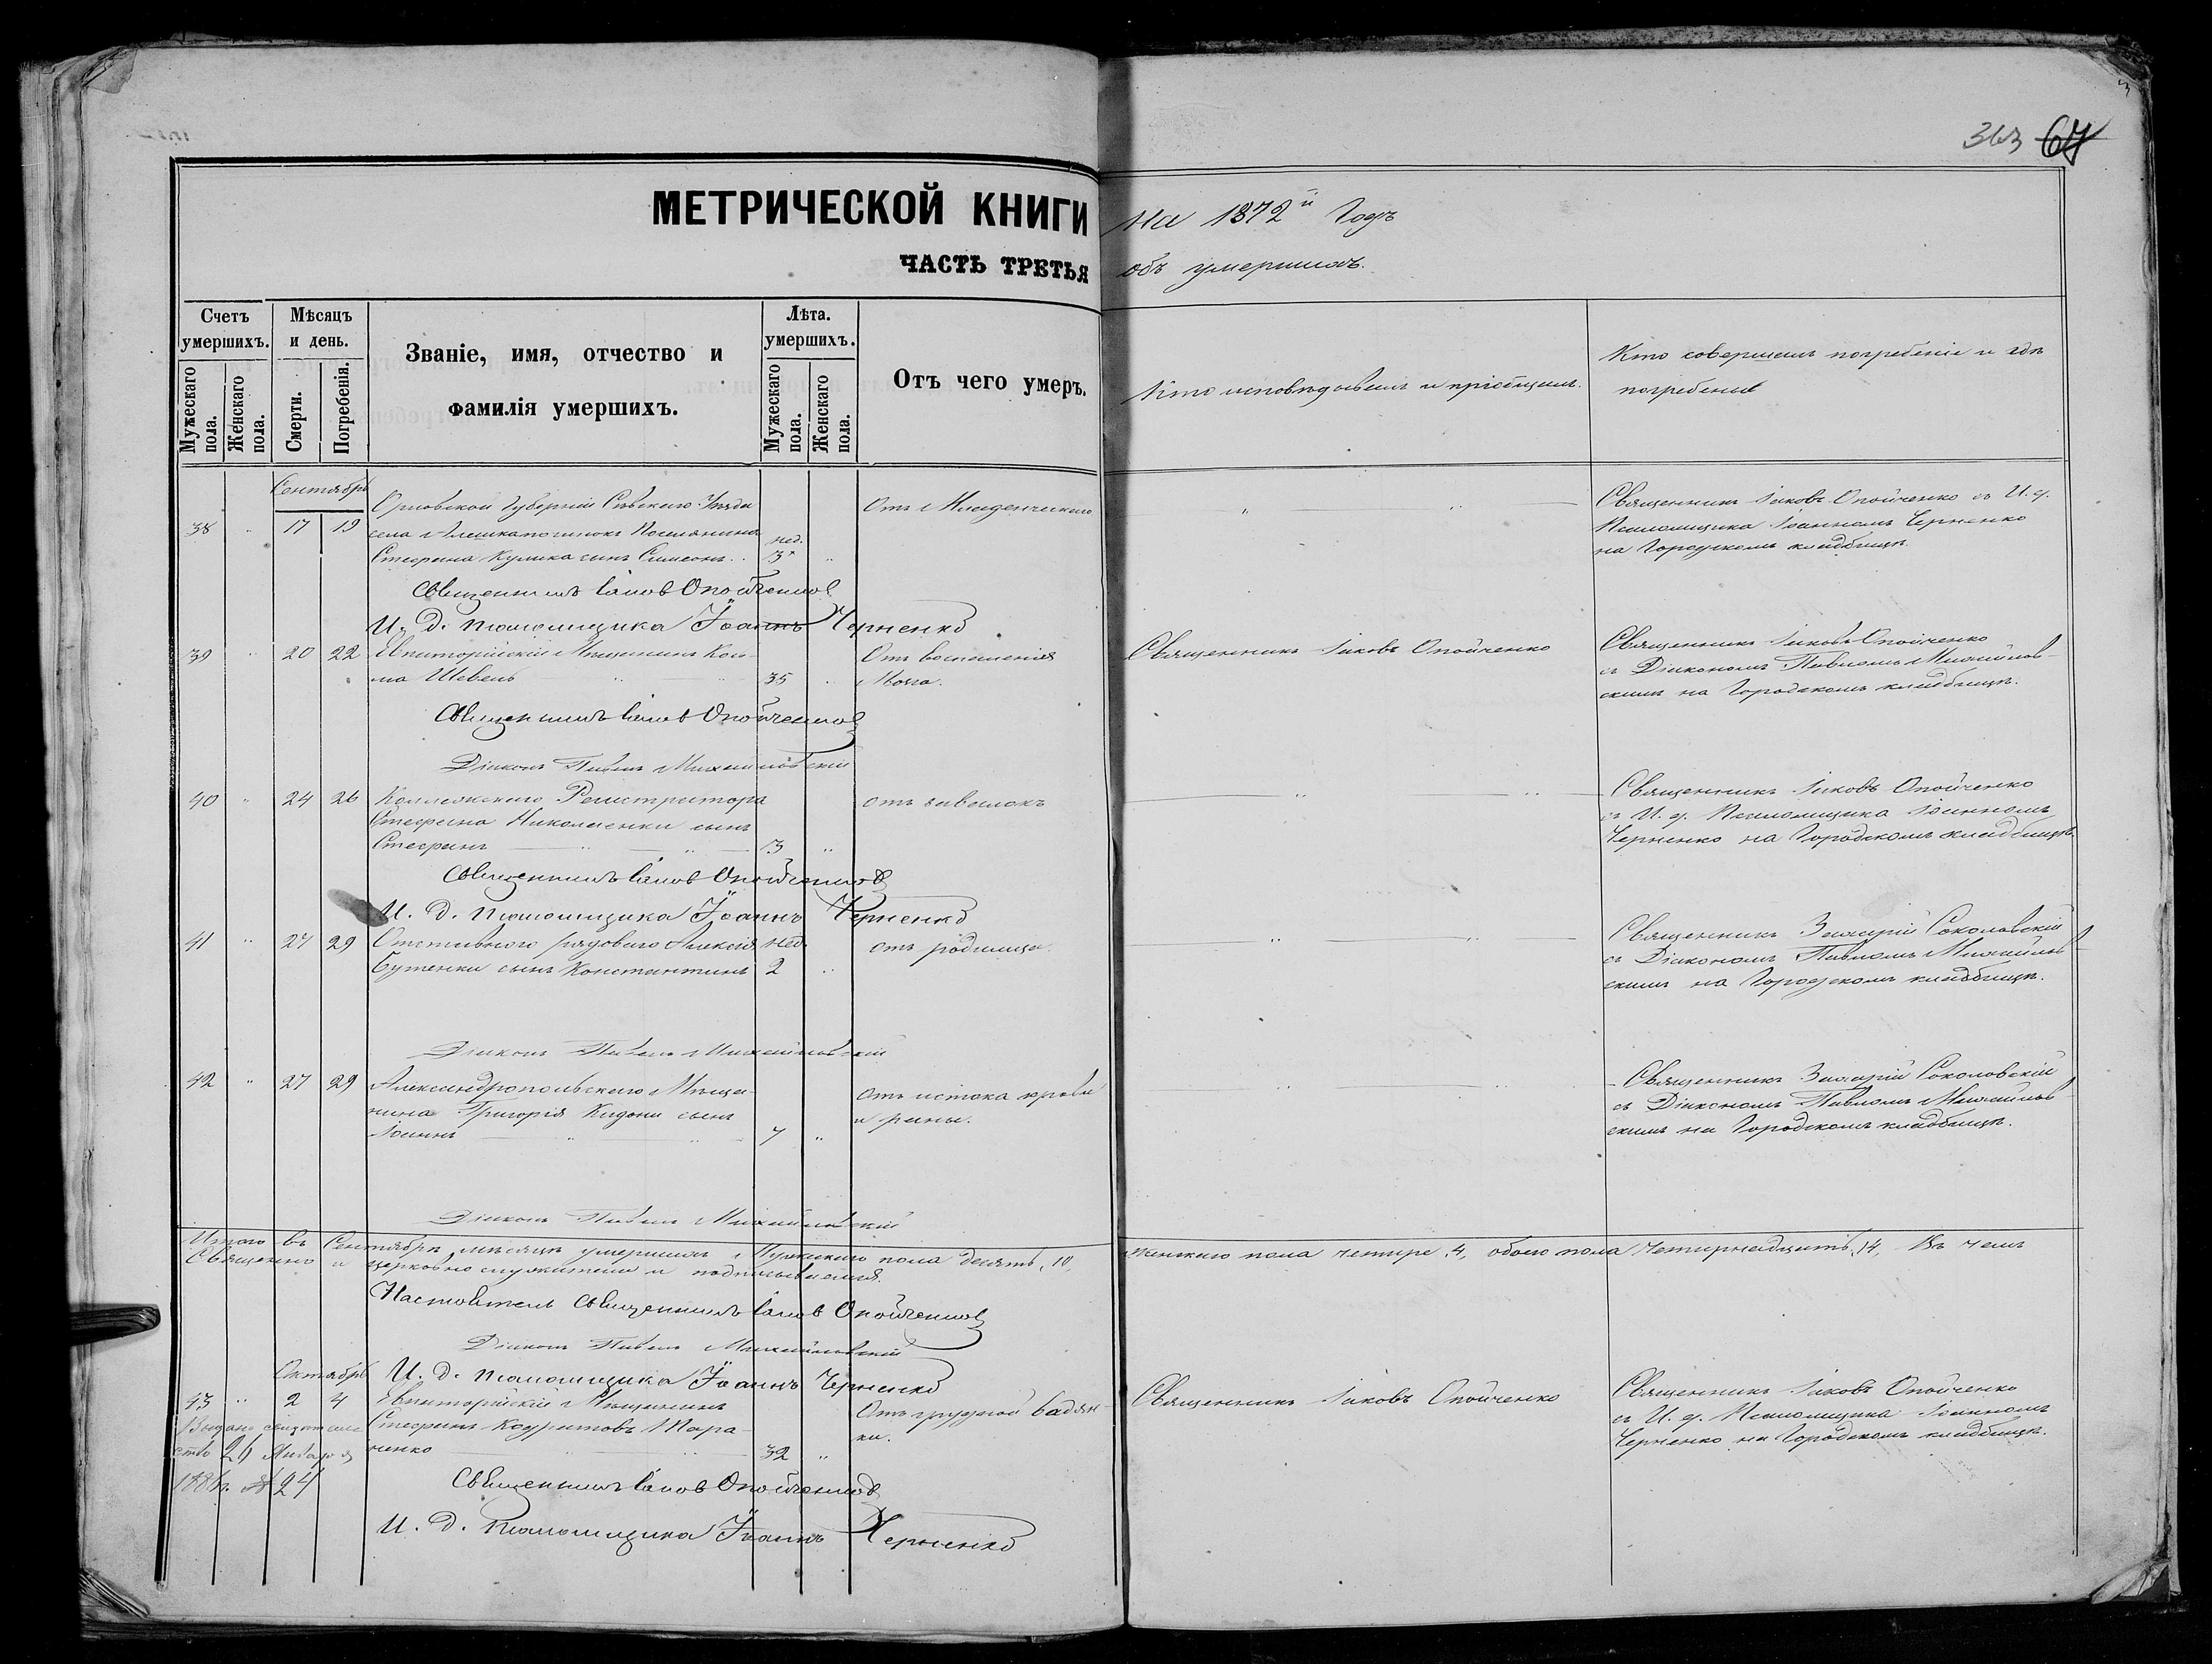 363 64
МЕТРИЧЕСКОЙ КНИГИ на 1872й Годъ
ЧАСТЬ ТРЕТЬЯ объ умершихъ.
Счетъ умершихъ.
Мужескаго пола.
Женскаго пола.
Мѣсяцъ и день.
Смерти.
Погребенія.
Званіе, имя, отчество и
фамилія умершихъ.
Лѣта. умершихъ.
Мужескаго пола.
Женскаго пола.
Отъ чего умеръ.
Кто исповѣдывалъ и пріобщалъ.
Кто совершалъ погребеніе и гдѣ
погребены
Сентябрь
38 " 17 19
Орловской Губерніи Сѣвскаго Уѣзда
села Поселянина
Стефана Кулика сынъ Симеонъ. нед. 3 "
Отъ Младенческаго
Священникъ Іаковъ Опойченко съ И. д.
Псаломщика Іоанномъ Черненко
на Городскомъ кладбищѣ.
Священникъ Іаковъ Опойченков
И. д. псаломщика Іоаннъ Черненко
39 " 20 22
Евпаторійскій Мѣщанинъ Кос-
ма Шевель 35 "
Отъ воспаленія
мозга.
Священникъ Іаковъ Опойченко
Священникъ Іаковъ Опойченко
съ Діакономъ Павломъ Михайлов-
скимъ на Городскомъ кладбищѣ.
Священникъ Іаковъ Опойченков
Діаконъ Павелъ Михайловскій
40 " 24 26
Коллежскаго Регистратора
Стефана Николаенки сынъ
Стефанъ 3 "
отъ завалокъ
Священникъ Іаковъ Опойченко
съ И. д. Псаломщика Іоанномъ
Черненко на Городскомъ кладбищѣ.
Священникъ Іаковъ Опойченков
И. д. псаломщика Іоаннъ Черненко
41 " 27 29
Отставного рядового Алексія нед.
Бутенки сынъ Константинъ 2 "
отъ родимца
Священникъ Захарій Соколовскій
съ Діакономъ Павломъ Михайлов-
скимъ на Городскомъ кладбищѣ.
Діаконъ Павелъ Михайловскій
42 " 27 29
Александропольскаго Мѣща-
нина Григорія сынъ
Іоаннъ 7 "
Отъ истока крови
и раны.
Священникъ Захарій Соколовскій
съ Діакономъ Павломъ Михайлов-
скимъ на Городскомъ кладбищѣ.
Діаконъ Павелъ Михайловскій
Итого въ Сентябрѣ мѣсяцѣ умершихъ Мужескаго пола десять, 10, женскаго пола четыре, 4, обоего пола четырнадцать, 14, Въ чемъ
Священно и церковно служители и подписываемся.
Настоятель Священникъ Іаковъ Опойченков
Діаконъ Павелъ Михайловскій
И. д. псаломщика Іоаннъ Черненко
Октябрь
43 " 2 4
Евпаторійскій Мѣщанинъ
Стефанъ Тара-
ненко 32 "
Отъ грудной водян-
ки.
Священникъ Іаковъ Опойченко
Священникъ Іаковъ Опойченко
съ И. д. Псаломщика Іоанномъ
Черненко на Городскомъ кладбищѣ.
Выдано свидѣтель
ство 29 Января
№ 24
Священникъ Іаковъ Опойченков
И. д. псаломщика Іоаннъ Черненко